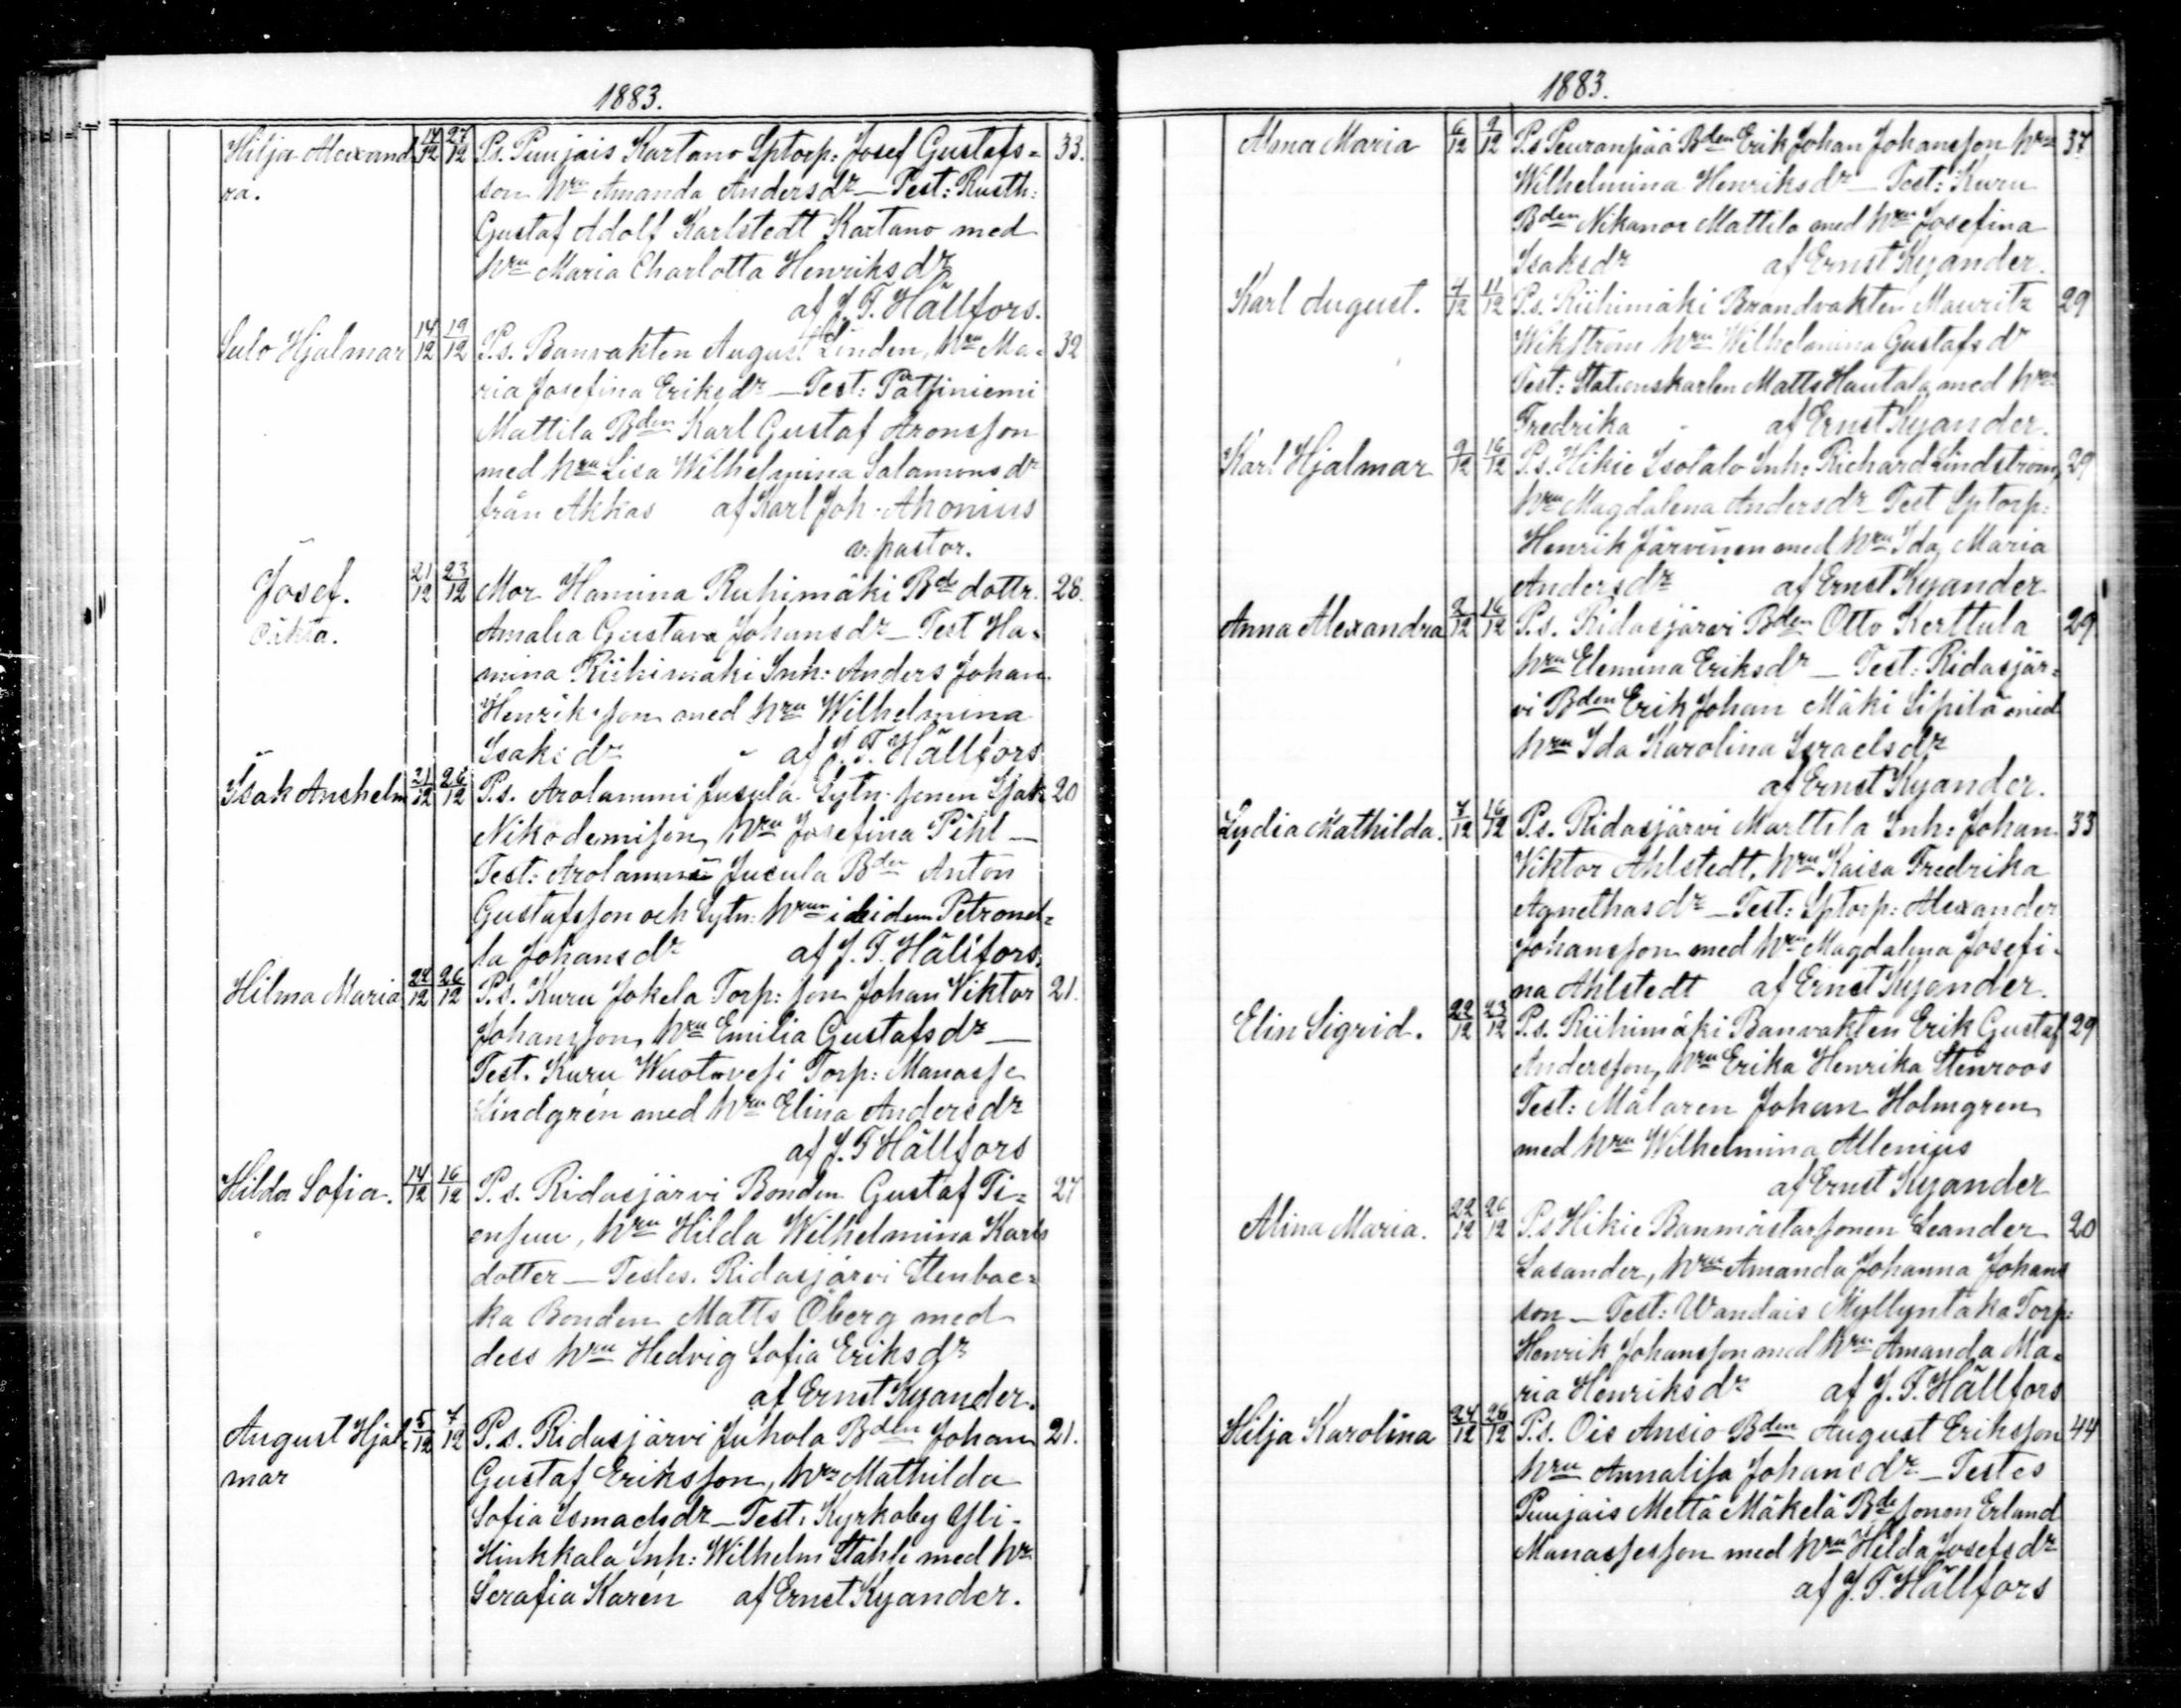 1883.
Hilja Alexand- 14/12 27/12 P.s. Punjais Kartano Sptorp: Josef Gustafs= 33.
ra. son hru Amanda Andersdr — Test: Rusth:
Gustaf Adolf Karlstedt Kartano med
hru Maria Charlotta Henriksdr
af J. F. Hällfors.
Sulo Hjalmar 14/12 19/12 P.s. Banvakten August Linden, hru Ma- 32
ria Josefina Eriksdr — Test: Pätsiniemi
Mattila Bden Karl Gustaf Aronsson
med hru Lisa Wilhelmina Salamonsdr
från Akkas af Karl Joh. Ahonius
v: pastor.
Josef. 21/12 23/12 Mor Hamina Riihimäki Bde dottr. 28.
oäkta. Amalia Gustava Johansdr — Test Ha-
mina Riihimäki Inh: Anders Johan
Henriksson med hru Wilhelmina
Isaksdr af J. F. Hällfors
Isak Anshelm 21/12 26/12 P.s. Arolammi Jusula Sytn. sonen Isak 20
Nikodemison, hru Josefina Pihl —
Test: Arolammi Jusula Bden Anton
Gustafsson och Sytn: hrun ibidem Petronel=
la Johansdr af J. F. Hällfors.
Hilma Maria. 24/12 26/12 P.s. Kuru Jokela Torp: son Johan Viktor 21.
Johansson, hru Emilia Gustafsdr —
Test. Kuru Wuotavesi Torp: Manasse
Lindgrén med hru Elina Andersdr
af J. F Hällfors
Hilda Sofia. 14/12 16/12 P.s. Ridasjärvi Bonden Gustaf Ti= 27
ensuu, hru Hilda Wilhelmina Karls
dotter — Testes. Ridasjärvi Stenbac=
ka Bonden Matts Öberg med
dess hru Hedvig Sofia Eriksdr
af Ernst Kyander.
August Hjal- 5/12 7/12 P.s. Ridasjärvi Juhola Bden Johan 21.
mar Gustaf Eriksson, hru Mathilda
Sofia Ismaelsdr — Test. Kyrkoby Yli-
Hinkkala Inh: Wilhelm Ståhle med hru
Serafia Karén af Ernst Kyander.
1883.
Alma Maria 6/12 9/12 P.s Peuranpää Bden Erik Johan Johansson hru 37
Wilhelmina Henriksdr — Test: Kuru
Bden Nikanor Mattila med hru Josefina
Isaksdr af Ernst Kyander.
Karl August. 4/12 11/12 P.s. Riihimäki Brandvakten Mauritz 29
Wikström hru Wilhelmina Gustafsdr
Test: Stationskarlen Matts Hautala med hru
Fredrika af Ernst Kyander.
Karl Hjalmar 9/12 16/12 P.s. Hikie Isotalo Inh: Richard Lindström, 29
hru Magdalena Andersdr Test Sptorp:
Henrik Järvinen med hru Ida Maria
Andersdr af Ernst Kyander
Anna Alexandra 9/12 16/12 P.s. Ridasjärvi Bden Otto Kerttula 29
hru Elemina Eriksdr — Test: Ridasjär-
vi Bden Erik Johan Mäki Sipilä med
hru Ida Karolina Israelsdr
af Ernst Kyander.
Lydia Mathilda. 7/12 16/12 P.s. Ridasjärvi Marttila Inh: Johan 33
Viktor Ahlstedt, hru Kaisa Fredrika
Agnethasdr — Test: Sptorp: Alexander
Johansson med hru Magdalena Josefi-
na Ahlstedt af Ernst Kyander.
Elin Sigrid. 22/12 23/12 P.s. Riihimäki Banvakten Erik Gustaf 29
Andersson, hru Erika Henrika Stenroos
Test: Målaren Johan Holmgren
med hru Wilhelmina Allenius
af Ernst Kyander
Alina Maria. 22/12 26/12 P.s Hikie Banmästarsonen Leander 20
Lasander, hru Amanda Johanna Johans
son — Test: Wandais Myllyntaka Torp:
Henrik Johansson med hru Amanda Ma-
ria Henriksdr af J. F. Hällfors
Hilja Karolina 24/12 26/12 P.s. Ois Ansio Bden August Eriksson 44
hru Annalisa Johansdr — Testes
Punjais Mettä Mäkelä Bde sonen Erland
Manassesson med hru Hilda Josefsdr
af J. F. Hällfors